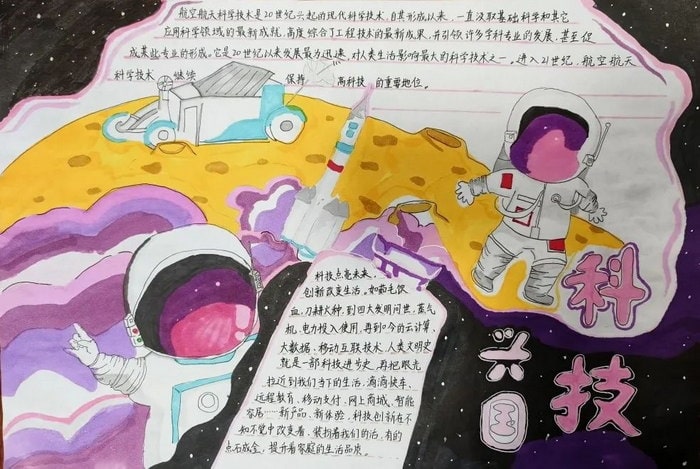 航空航天科学技术是20世纪兴起的现代科学技术,自其形成以来,一直汲取基础科学和其它
应用科学领域的最新成就,高度综合了工程技术的最新成果,并引领许多学科专业的发展,甚至促
成某些专业的形成。它是20世纪以来发展最为迅速,对人类生活影响最大的科学技术之一。进入21世纪,航空航天
科学技术 继续 保持 高科技 的重要地位。
科技点亮未来,
创新改变生活。如茹毛饮
血,刀耕火种,到四大发明问世,蒸气
机,电力投入使用,再到今的云计算,
大数据,移动互联技术,人类文明史
就是一部科技进步史,再把眼光
拉近到我们当下的生活,滴滴快车、
远程教育、移动支付、网上商城、智能
容居……新产品、新体验,科技创新在不
知不觉中改变着、装扮着我们的活,有的
点石成金,提升着家庭的生活品质。
科
技
兴
国